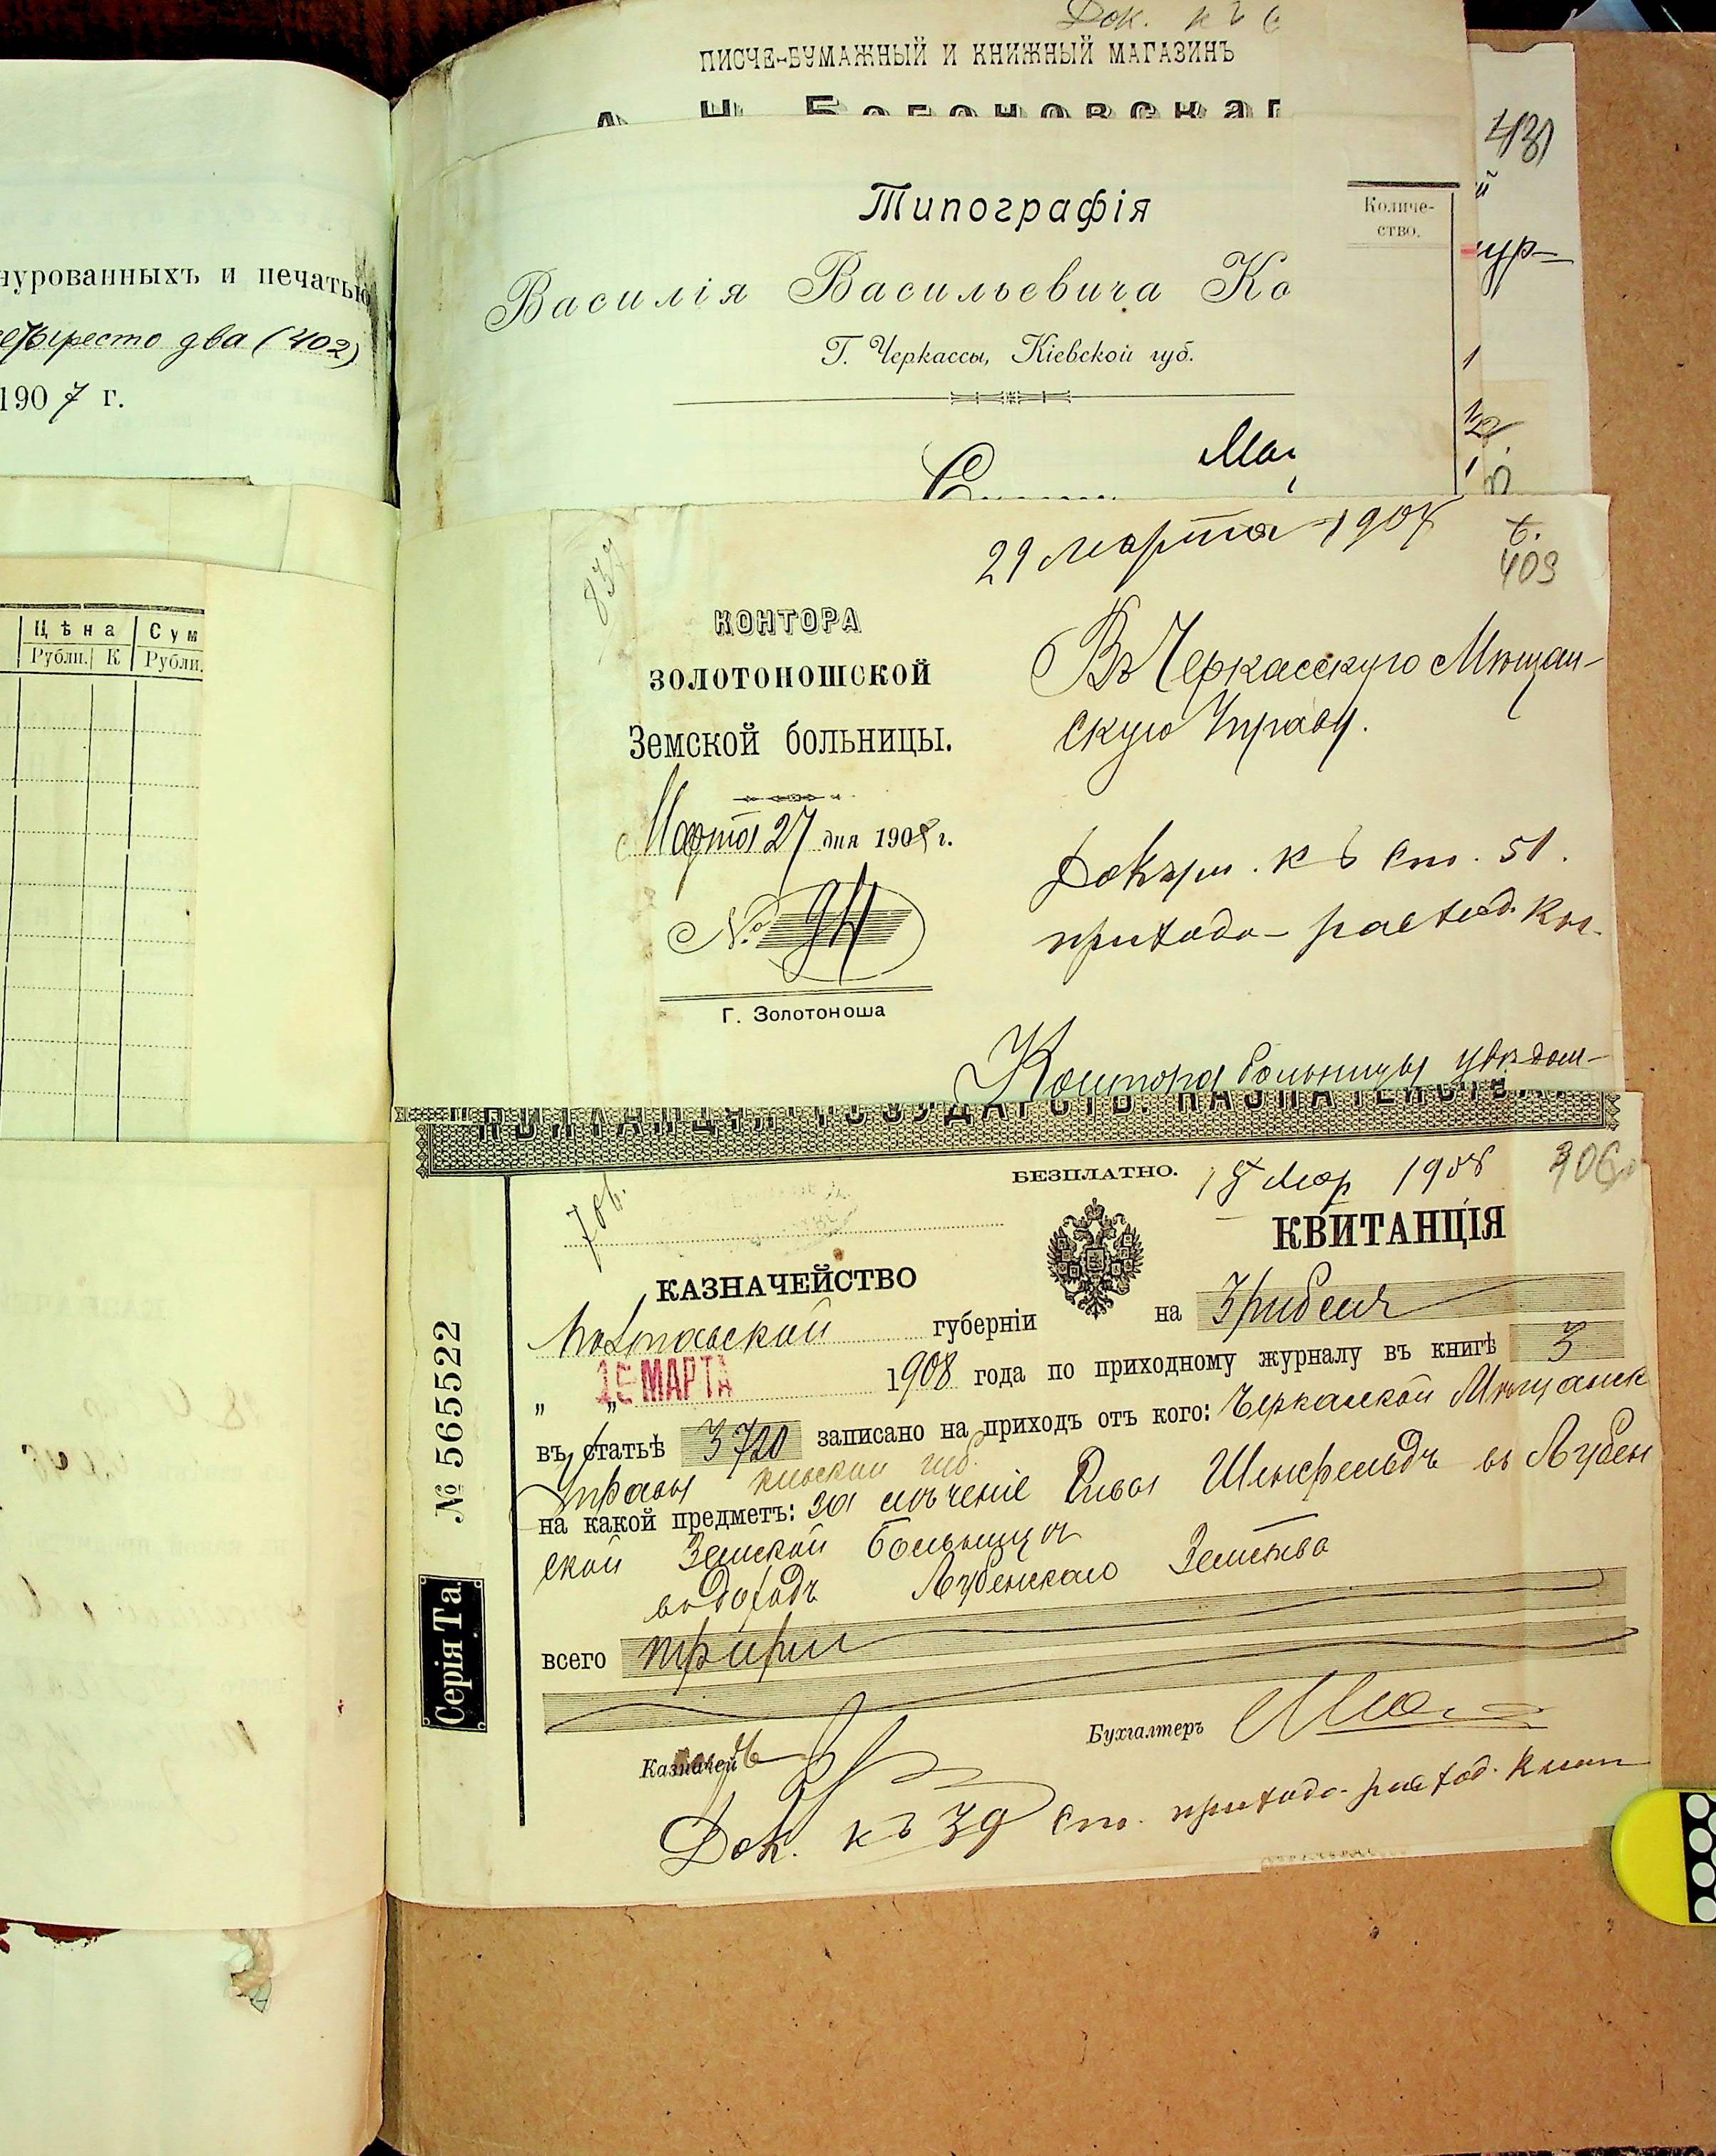 нурованныхъ и печатью
два (402)
1907 г.
Цѣна Сум
Рубли. К Рубли.
Док. къ
ПИСЧЕ-БУМАЖНЫЙ И КНИЖНЫЙ МАГАЗИНЪ
Типографія
Василія Васильевича Ко
Г. Черкассы, Кіевской губ.
Количе-
ство.
431
29 Марта 1908
403
839
КОНТОРА
ЗОЛОТОНОШСКОЙ
Земской больницы.
Марта 27 дня 1908 г.
№ 94
Г. Золотоноша
Въ Черкасскую Мѣщан-
скую Управу.
Докум. къ ст. 51.
приходо-расход. кн.
Контора больницы увѣдом-
КВИТАНЦІЯ ГОСУДАРСТВ. КАЗНАЧЕЙСТВА.
БЕЗПЛАТНО. 18 Мар 1908
706.
КАЗНАЧЕЙСТВО
КВИТАНЦІЯ
Полтавской губерніи на 3 рубля
МАРТА 1908 года по приходному журналу въ книгѣ 3
въ статьѣ 3720 записано на приходъ отъ кого: Черкасской Мѣщанск
Управы Кіевской губ.
на какой предметъ: за лѣченіе въ Лубен
ской Земской больницы
въ доходъ Лубенскаго Земства
всего три руб
Казначей
Бухгалтеръ
Док. къ 39 ст. приходо-расход. книг
№ 565522
Серія Та